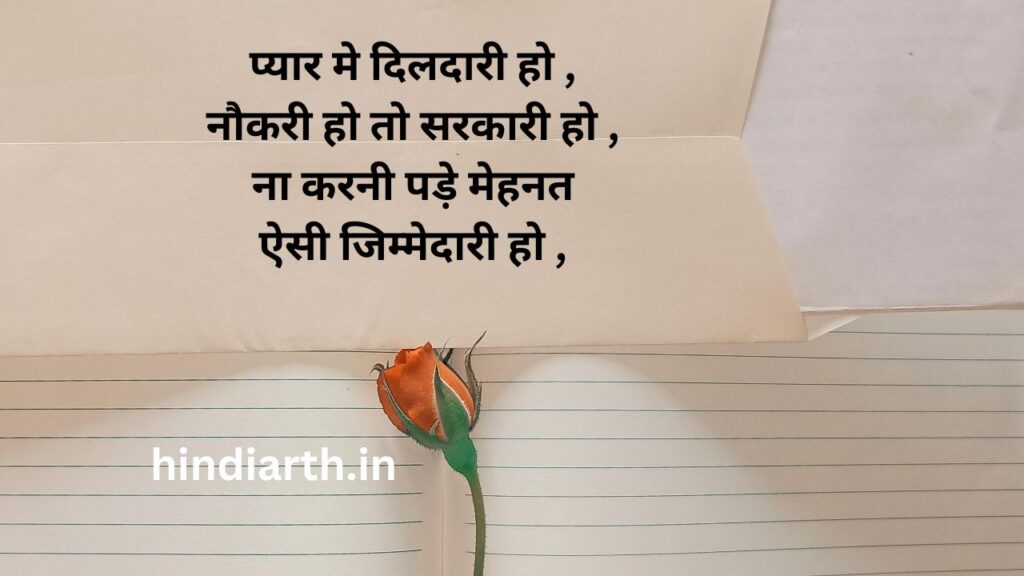 प्यार मे दिलदारी हो ,
नौकरी हो तो सरकारी हो ,
ना करनी पड़े मेहनत
ऐसी जिम्मेदारी हो ,
hindiarth.in